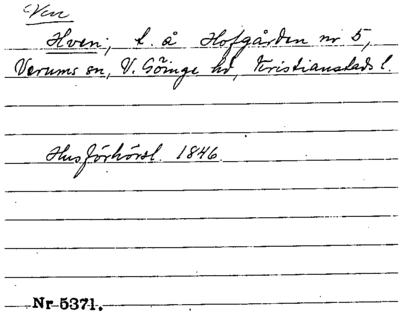 Ven
Hven; t. å Hofgården nr 5,
Verums sn, V. Göinge hd, Kristianstads l.
Husförhörsl. 1846.
Nr 5371.